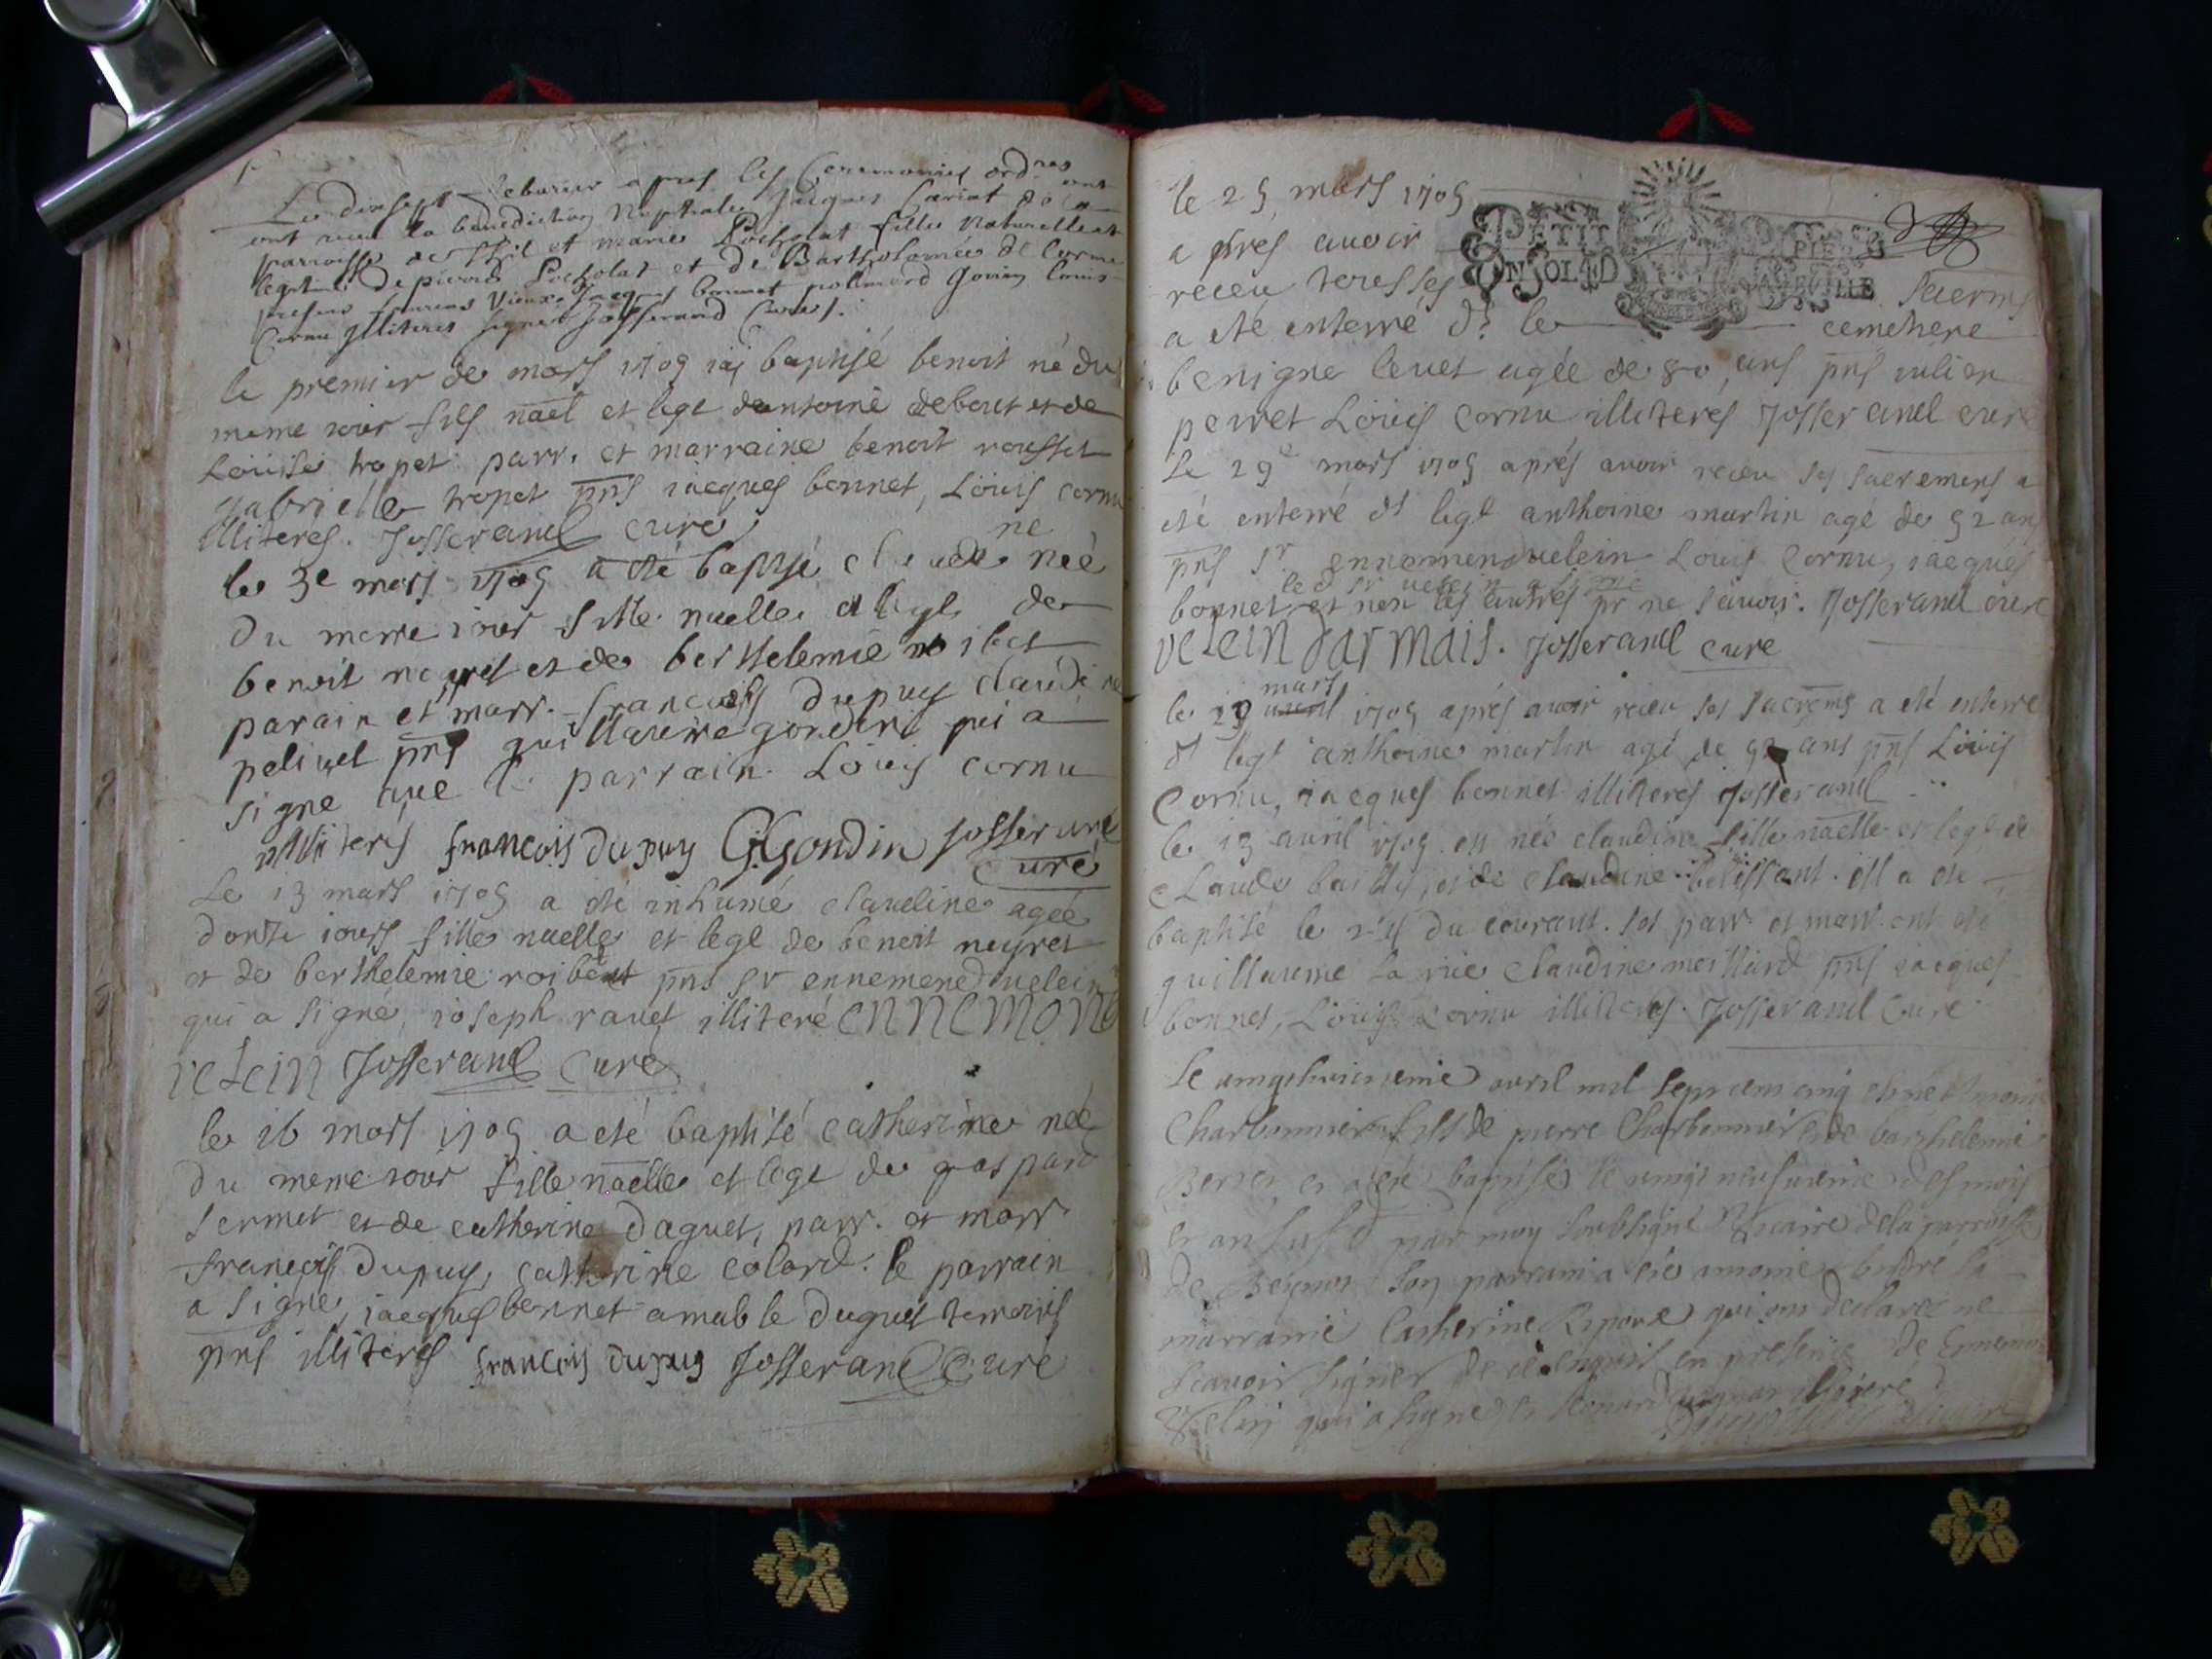 Le dixsept febvrier apres les Ceremonies ord.res ont
ont receu la benediction Nuptiale Jacques Cariat de la
parroisse de Thil et marie Pocholat fille Naturelle et
legit. de pierre Pocholat et de Bartholomée de Corme
Jacques bonnet Gonin Louis
Cornu Illiteres signé Josserand Curé.
le premier de mars 1705 iaj baptisé benoit né du
meme iour fils nãel et legt deantoine debout et de
Louise tropet parr. et marraine benoit rousset
gabrielle tropet pñs iacques bonnet, Louis cornu
illiteres. Josserand curé
le 3e mars 1705 a eté baptisé claudine neé
du meme iour fille nuelle et legt de
benoit neyret et de berthelemie roibet
parain et marr. francois dupuy claudine
pelicet pñs guillaume gondin qui a
signe avé le parrain. Louis cornu
illiteres francois dupuy G Gondin Josserand
Curé
Le 13 mars 1705 a eté inhumé claudine agée
d'onze iours fille nuelle et legt de benoit neyret
et de berthelemie roibet pñs sr ennemend velein
qui a signé, ioseph ravet illiteré ENNEMOND
velein Josserand Curé
le 16 mars 1705 a eté baptisé catherine née
du meme iour fille nãelle et legt de gaspard
sermet et de catherine daguet, parr. et marr
francois dupuy, catherine colard. le parrain
a signe, iacques bonnet amable duguet temoins
pñs illiteres francois dupuy Josserand Curé
le 25 mars 1705
apres avoir PETIT PAPIER
receu tous ses ON SOL 4 D LA FEVILLE sacrems
a eté enterré ds le cemetiere
benigne levet agée de 80 ans pñs iulien
perret Louis cornu illiteres Josserand curé
Le 29e mars 1705 aprés avoir receu ses sacremens a
eté enterré ds legl anthoine martin agé de 52 ans
pñs sr ennemend velein Louis cornu, iacques
le d sr velein a signé
bonnet et non les autres pr ne scavoir. Josserand curé
velein darmais. Josserand curé
mars
le 29 avril 1705 aprés avoir receu ses sacrems a eté enterré
ds legl anthoine martin agé de 52 ans pñs Louis
Cornu, iacques bonnet illiteres Josserand
le 13 avril 1705 est née claudine fille nãelle et legt de
claude bailly, et de claudine belissant. ell a eté
baptisé le du courant. ses parr et marr. ont eté
guillaume la rue claudine meillard pñs iacques
bonnet, Louis cornu illiteres. Josserand Curé
Le vingthuictieme avril mil sept cent cinq est né
Charbonnier fils de pierre Charbonnier et de barthelemie
Berret et a eté baptisé le vingt neufvieme des mois
et an susd par moy soubsigné Vicaire de la parroisse
de Beynost son parrain a eté antoine la
marraine Catherine qui ont declaré ne
scavoir signer de ce enquis en presence de Ennemond
Velein qui a signe et illiteré